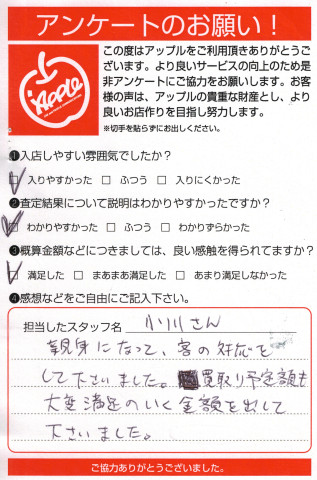 アンケートのお願い！
Apple
この度はアップルをご利用頂きありがとうご
ざいます。より良いサービスの向上のため是
非アンケートにご協力をお願いします。お客
様の声は、アップルの貴重な財産とし、より
良いお店作りを目指し努力します。
※切手を貼らずにお出しください。
❶入店しやすい雰囲気でしたか？
□ 入りやすかった □ ふつう □ 入りにくかった
❷査定結果について説明はわかりやすかったですか？
□ わかりやすかった □ ふつう □ わかりずらかった
❸概算金額などにつきましては、良い感触を得られてますか？
□ 満足した □ まあまあ満足した □ あまり満足しなかった
❹感想などをご自由にご記入下さい。
担当したスタッフ名 小川さん
親身になって、客の対応を
して下さいました。買取り予定額も
大変満足のいく金額を出して
下さいました。
ご協力ありがとうございました。